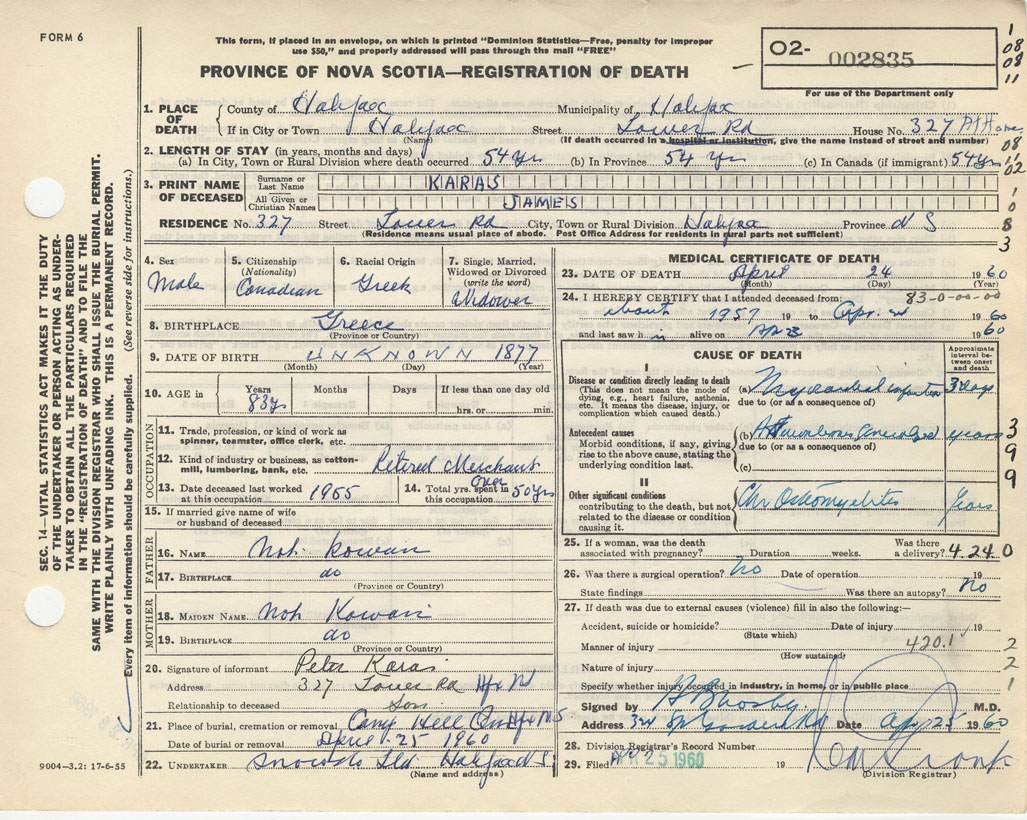 FORM 6
This form, if placed in an envelope, on which is printed "Dominion Statistics—Free, penalty for improper
use $50," and properly addressed will pass through the mail "FREE"
PROVINCE OF NOVA SCOTIA—REGISTRATION OF DEATH
O2- 002835
For use of the Department only
1. PLACE OF DEATH County of Halifax Municipality of Halifax
If in City or Town Halifax Street Tower Rd House No. 327 At Home
(Name) (If death occurred in a hospital or institution, give the name instead of street and number)
2. LENGTH OF STAY (in years, months and days)
(a) In City, Town or Rural Division where death occurred 54 yrs (b) In Province 54 yrs (c) In Canada (if immigrant) 54 yrs
3. PRINT NAME OF DECEASED Surname or Last Name KARAS
All Given or Christian Names JAMES
RESIDENCE No. 327 Street Tower Rd City, Town or Rural Division Halifax Province N S
(Residence means usual place of abode. Post Office Address for residents in rural parts not sufficient)
4. Sex Male
5. Citizenship (Nationality) Canadian
6. Racial Origin Greek
7. Single, Married, Widowed or Divorced (write the word) Widower
8. BIRTHPLACE Greece
(Province or Country)
9. DATE OF BIRTH UNKNOWN 1877
(Month) (Day) (Year)
10. AGE in Years 83 yrs Months Days If less than one day old
hrs. or min.
OCCUPATION
11. Trade, profession or kind of work as
spinner, teamster, office clerk, etc.
12. Kind of industry or business, as cotton-
mill, lumbering, bank, etc. Retired Merchant
13. Date deceased last worked at this occupation 1955
14. Total yrs. spent in this occupation over 50 yrs
15. If married give name of wife
or husband of deceased
FATHER
16. NAME Not Known
17. BIRTHPLACE do
(Province or Country)
MOTHER
18. MAIDEN NAME Not Known
19. BIRTHPLACE do
(Province or Country)
20. Signature of informant Peter Karas
Address 327 Tower Rd Hfx NS
Relationship to deceased Son
21. Place of burial, cremation or removal Camp Hill Cem Hfx N.S.
Date of burial or removal April 25 1960
22. UNDERTAKER Snows Ltd Halifax N.S.
(Name and address)
MEDICAL CERTIFICATE OF DEATH
23. DATE OF DEATH April 24 1960
(Month) (Day) (Year)
24. I HEREBY CERTIFY that I attended deceased from: 83-0-00-00
about 1957 19 to Apr. 1960
and last saw him alive on Apr 23 1960
CAUSE OF DEATH
Approximate interval between onset and death
I
Disease or condition directly leading to death
(This does not mean the mode of
dying, e.g., heart failure, asthenia,
etc. It means the disease, injury, or
complication which caused death.)
(a) Myocardial infarction 3 Days
due to (or as a consequence of)
Antecedent causes
Morbid conditions, if any, giving
rise to the above cause, stating the
underlying condition last.
(b) generalized years
due to (or as a consequence of)
(c)
II
Other significant conditions
contributing to the death, but not
related to the disease or condition
causing it.
Chr Osteomyelitis Years
25. If a woman, was the death
associated with pregnancy? Duration weeks. Was there a delivery? 4.24.0
26. Was there a surgical operation? No Date of operation 19
State findings Was there an autopsy? No
27. If death was due to external causes (violence) fill in also the following:—
Accident, suicide or homicide? Date of injury 19
(State which)
Manner of injury 420.1
(How sustained)
Nature of injury
Specify whether injury occurred in industry, in home, or in public place
Signed by M.D.
Address Date Apr 25 1960
28. Division Registrar's Record Number
29. Filed APR 25 1960 19
(Division Registrar)
1
08
08
11
08
11
02
1
0
8
3
3
9
9
0
2
2
1
SEC. 14—VITAL STATISTICS ACT MAKES IT THE DUTY
OF THE UNDERTAKER OR PERSON ACTING AS UNDER-
TAKER TO OBTAIN ALL THE PARTICULARS REQUIRED
IN THE "REGISTRATION OF DEATH" AND TO FILE THE
SAME WITH THE DIVISION REGISTRAR WHO SHALL ISSUE THE BURIAL PERMIT.
WRITE PLAINLY WITH UNFADING INK. THIS IS A PERMANENT RECORD.
Every item of information should be carefully supplied. (See reverse side for instructions.)
9004-3.2: 17-6-55